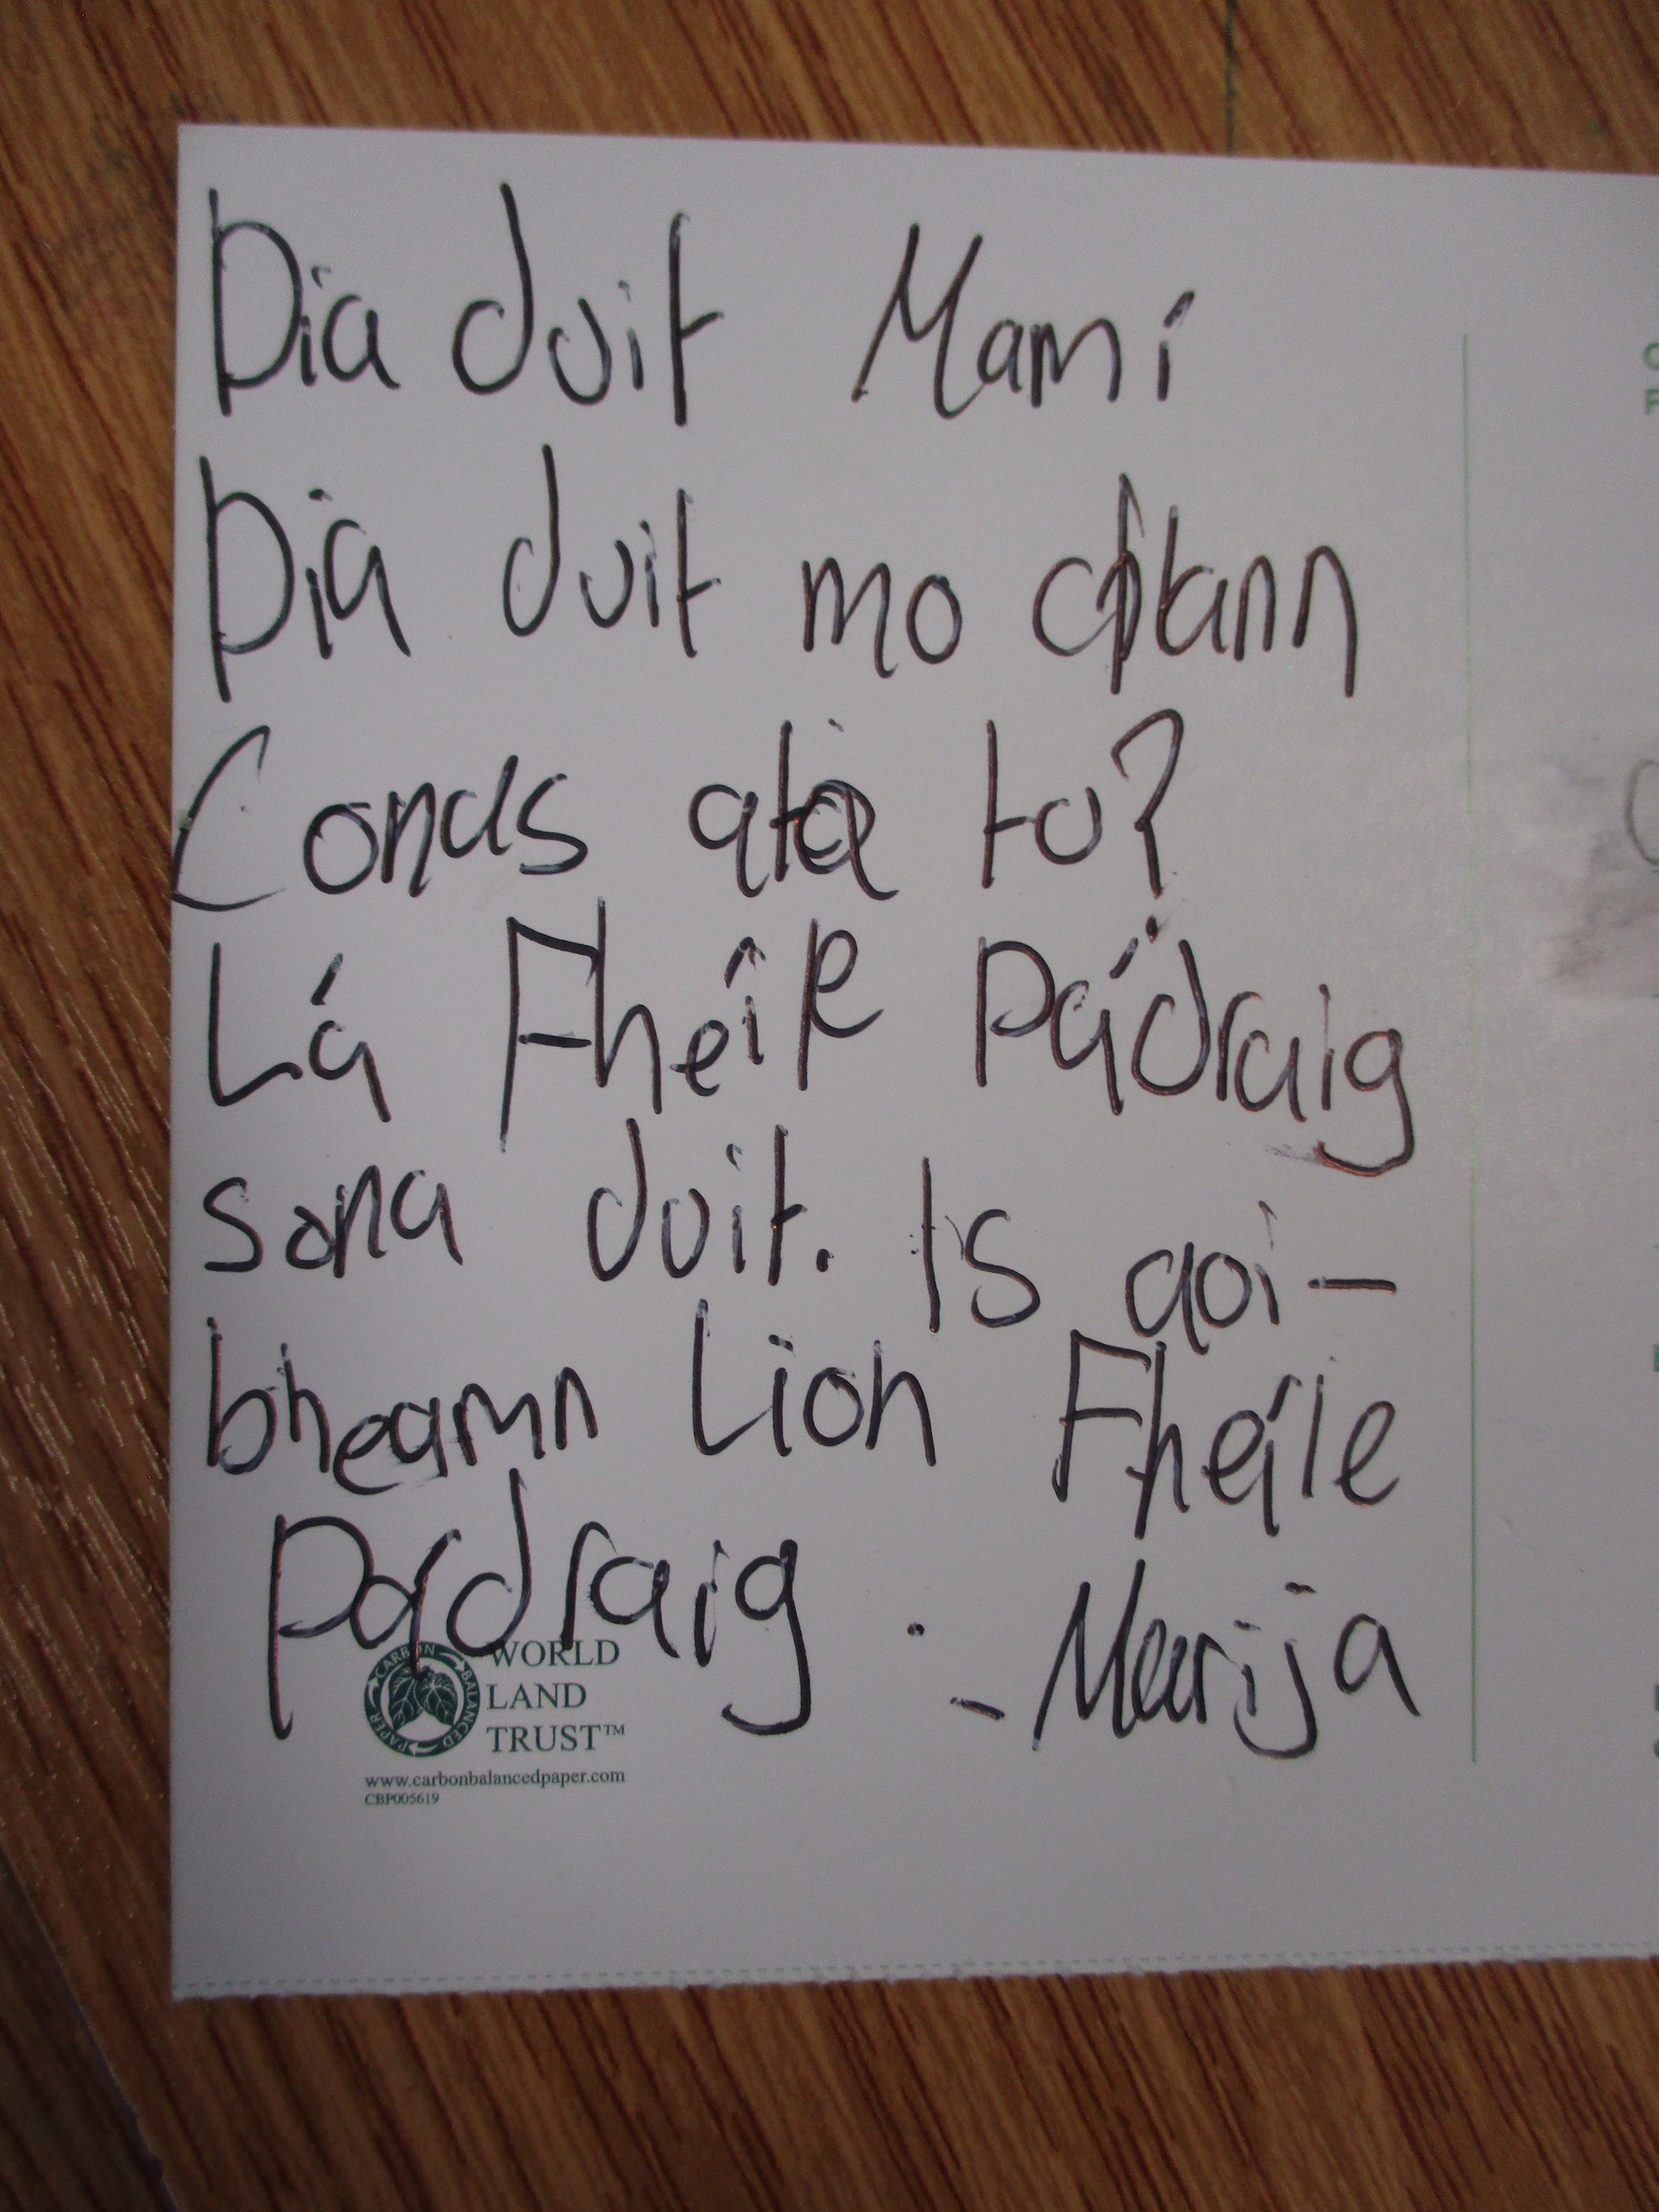 Dia duit Mamí
Dia duit mo chlann
Conas ata tu?
Lá Fheíle Pádraig
sona duit. Is aoi-
bheamn Lion Fheíle
Pádraig. - Marija
CARBON BALANCED PAPER
WORLD
LAND
TRUST™
www.carbonbalancedpaper.com
CBP005619